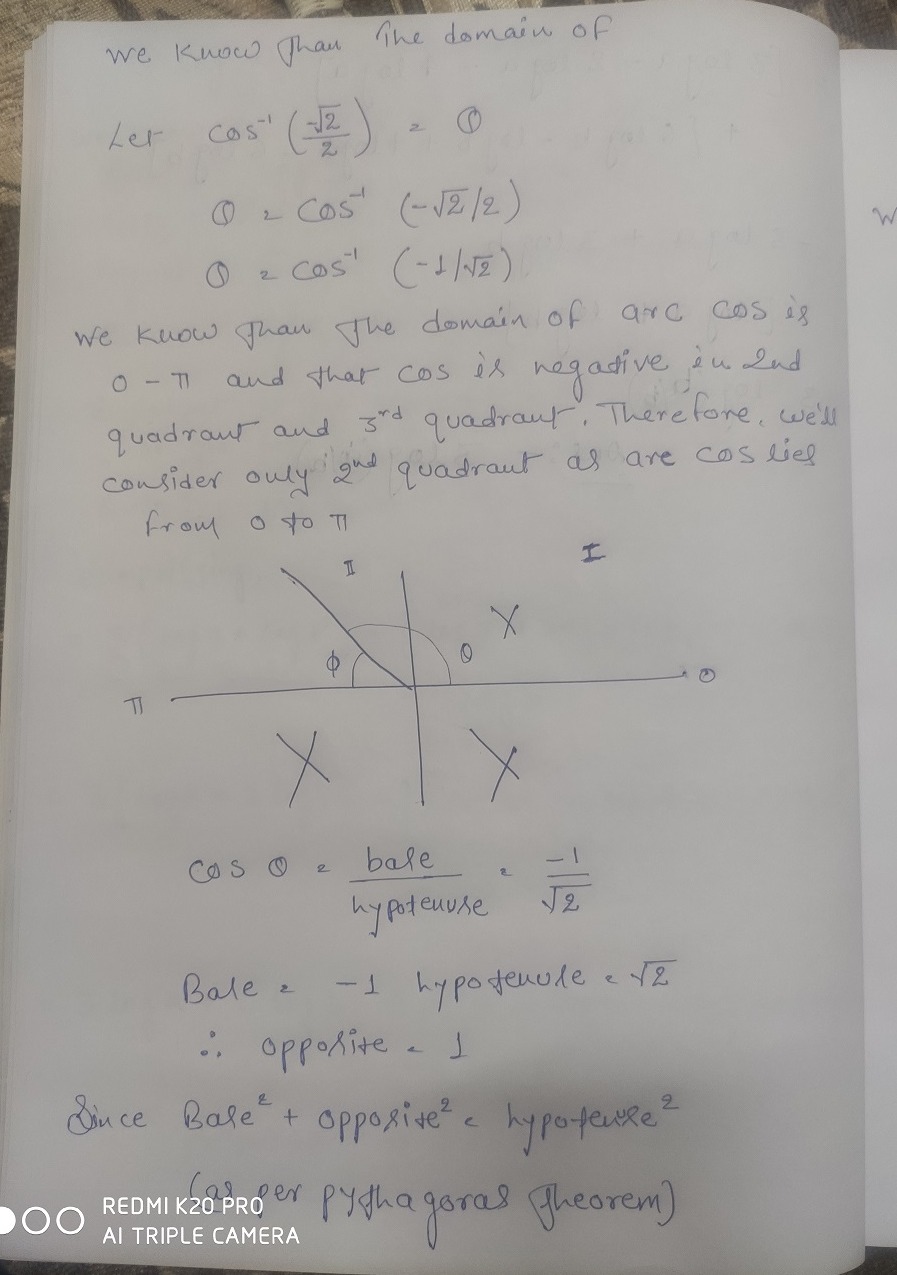 We know than the domain of
Let cos⁻¹ (-√2/2) = θ
θ = cos⁻¹ (-√2/2)
θ = cos⁻¹ (-1/√2)
We know than the domain of arc cos is
0 - π and that cos is negative in 2nd
quadrant and 3rd quadrant. Therefore, we'll
consider only 2nd quadrant as arc cos lies
from 0 to π
II
I
ϕ
θ
π
0
cos θ = base/hypotenuse = -1/√2
Base = -1 hypotenuse = √2
∴ opposite = 1
Since Base² + opposite² = hypotenuse²
(as per pythagoras theorem)
REDMI K20 PRO
AI TRIPLE CAMERA
W